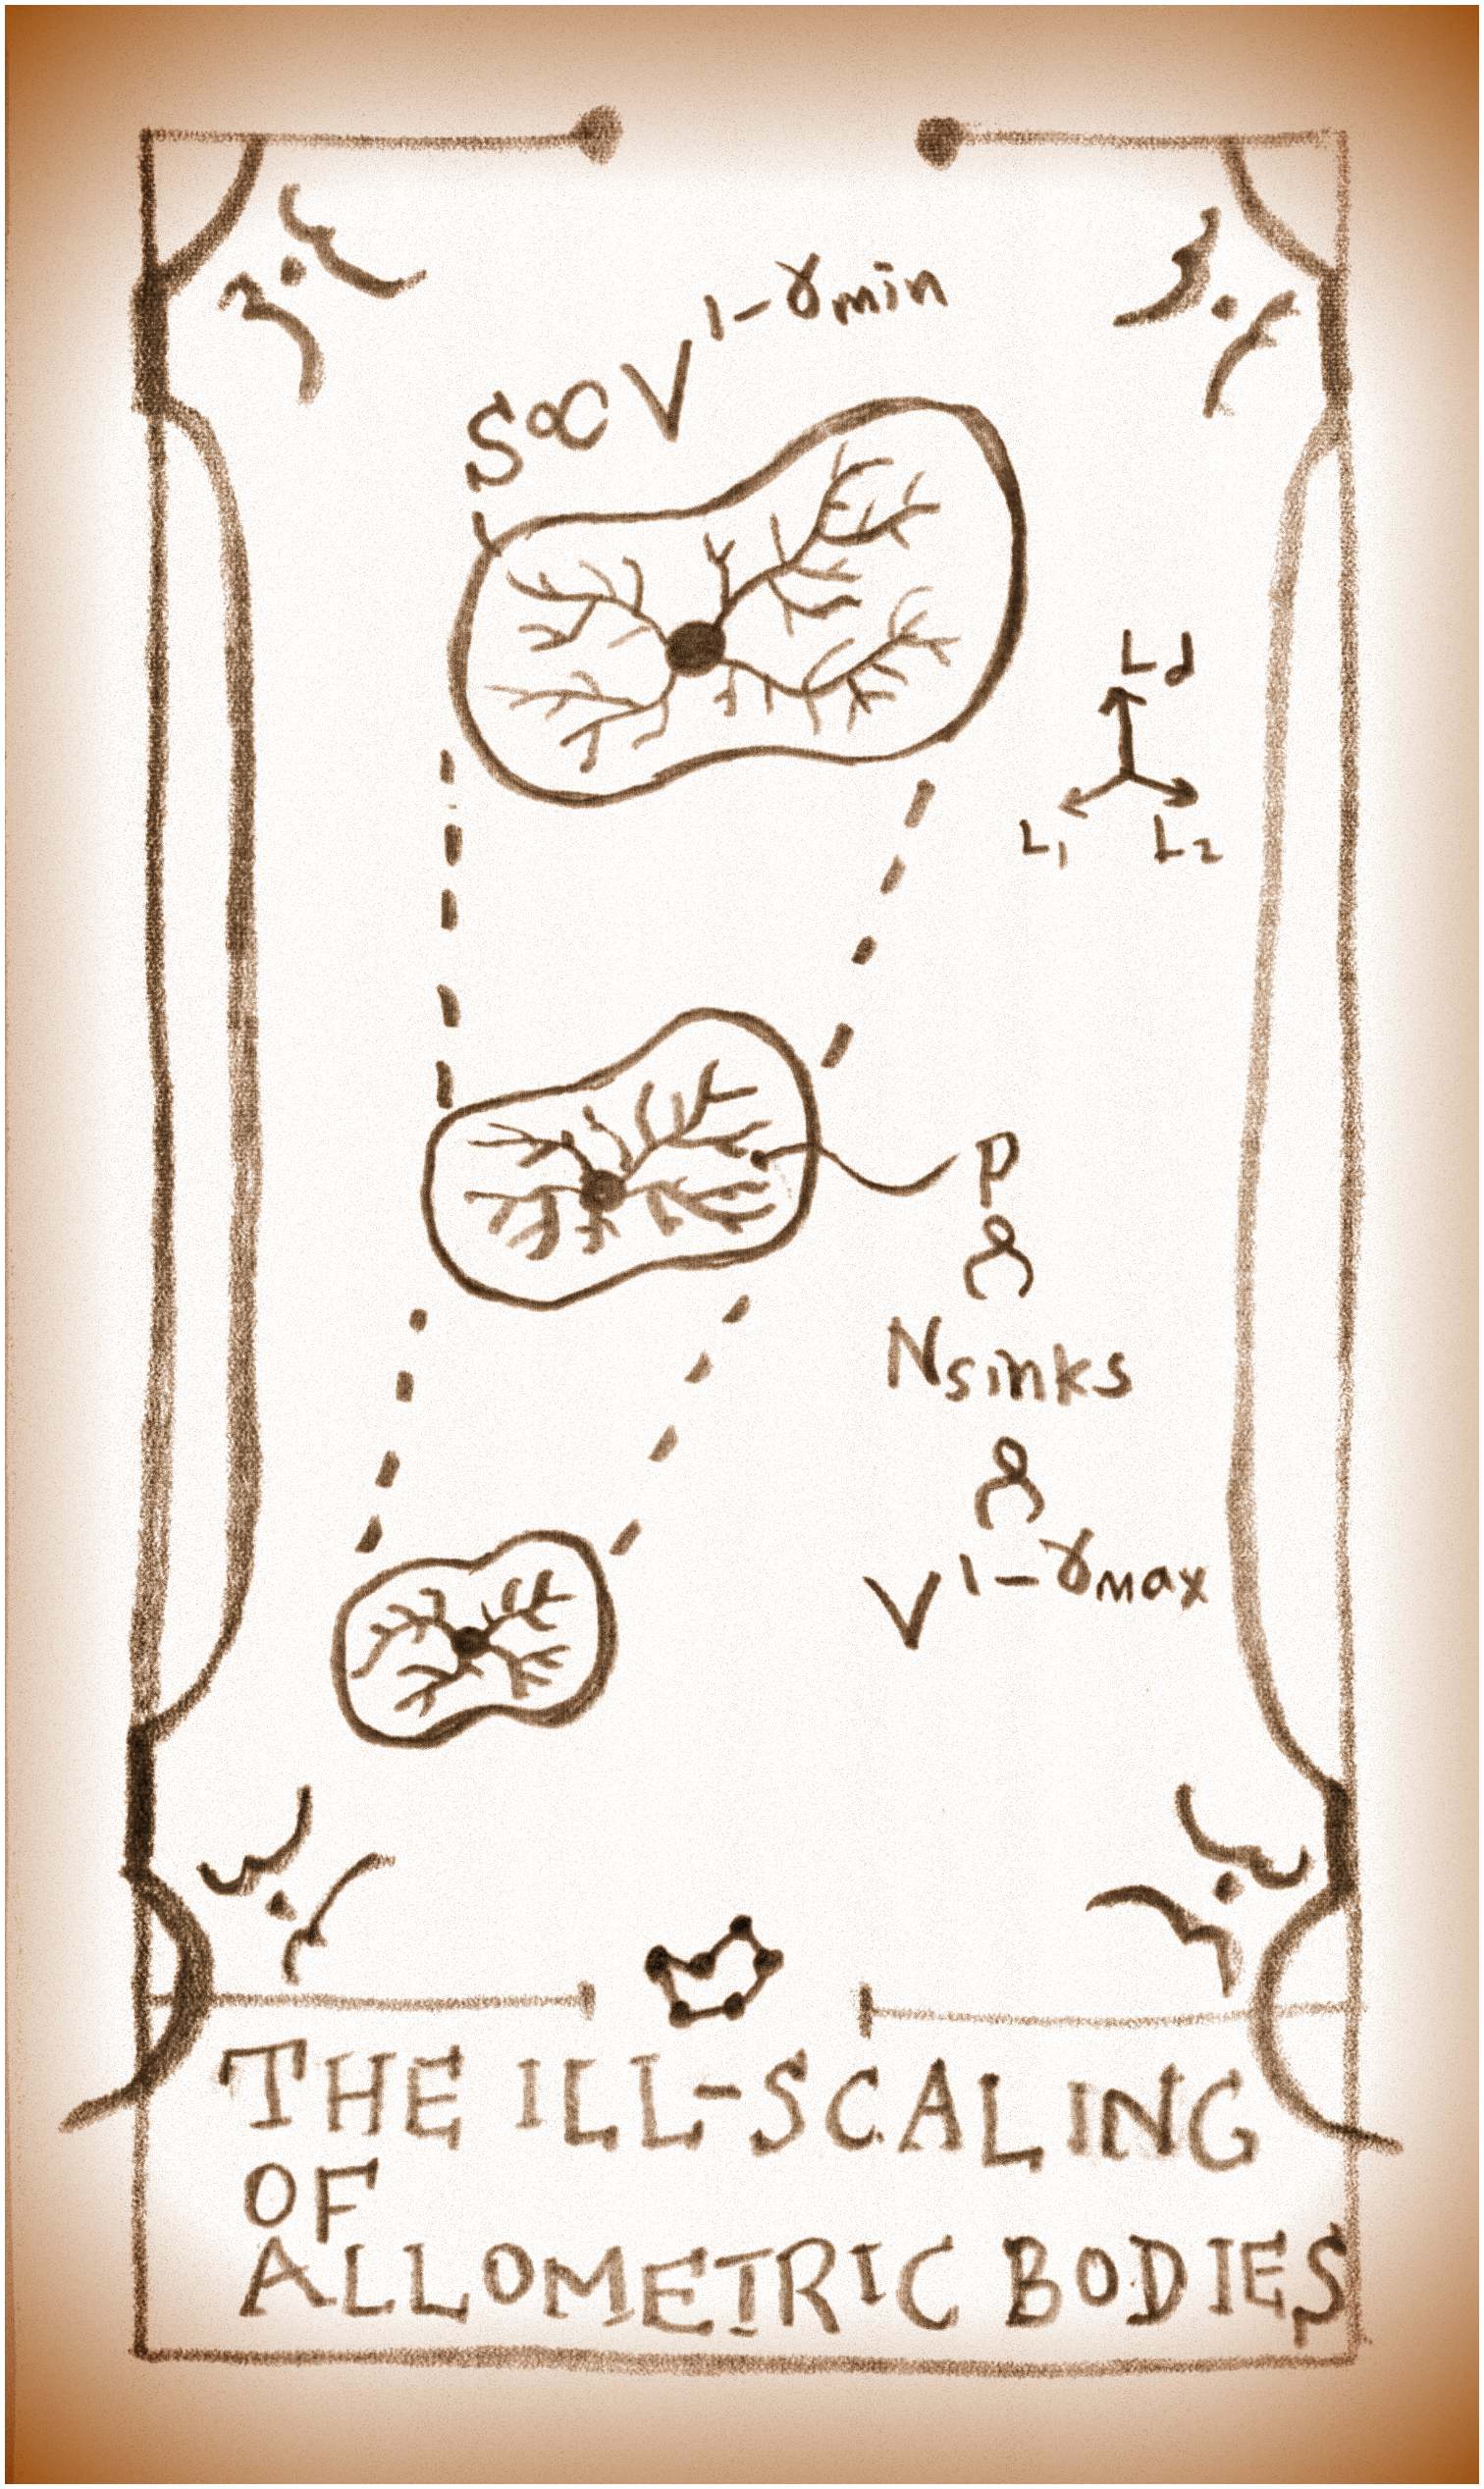 S∝V^1-γmin
Ld
L1 L2
ρ
∝
Nsinks
∝
V^1-γmax
THE ILL-SCALING
OF
ALLOMETRIC BODIES